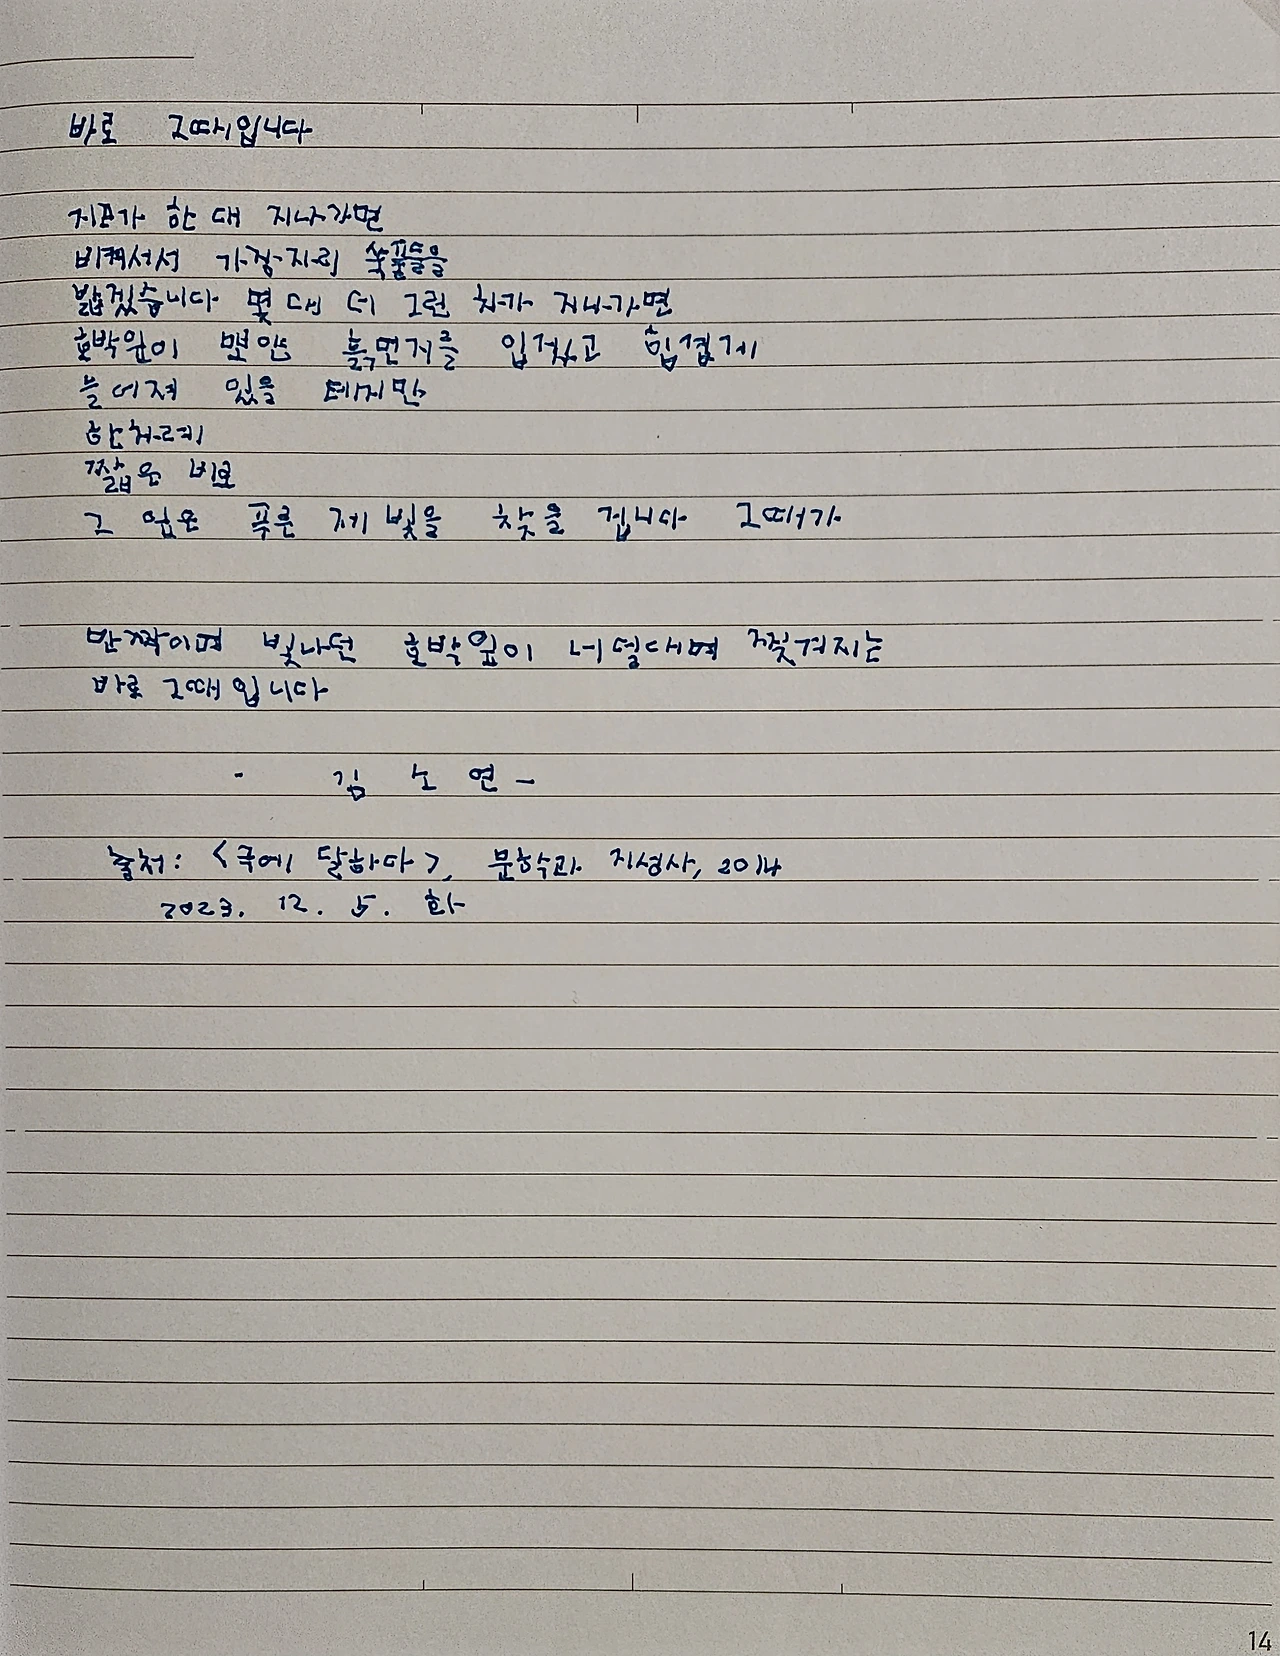 바로 그때입니다
지프가 한 대 지나가면
비켜서서 가장자리 쑥풀들을
밟겠습니다 몇 대 더 그런 차가 지나가면
호박잎이 뽀얀 흙먼지를 입겠고 힘겹게
늘어져 있을 테지만
한차례
짧은 비로
그 잎은 푸른 제 빛을 찾을 겁니다 그때가
반짝이며 빛나던 호박잎이 너덜대며 찢겨지는
바로 그때입니다
- 김 소 연 -
출처: <극에 달하다>, 문학과 지성사, 2014
2023. 12. 5. 화
14